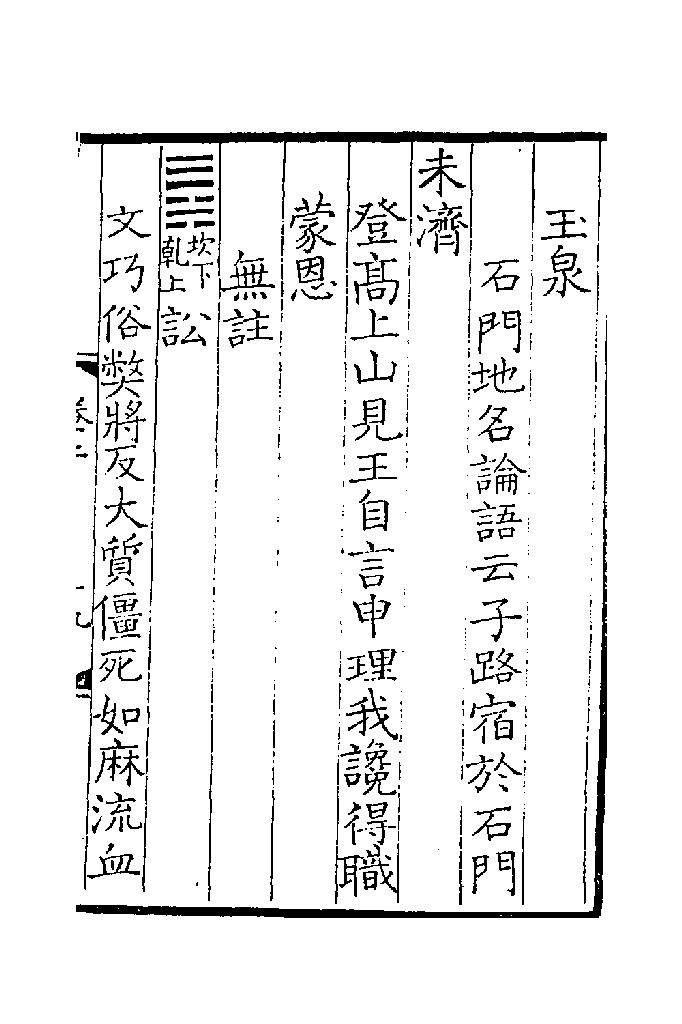 玉泉
石門地名論語云子路宿於石門
未濟
登高上山見王自言申理我讒得職
蒙恩
無註
坎下乹上訟
文巧俗弊將反大質僵死如麻流血